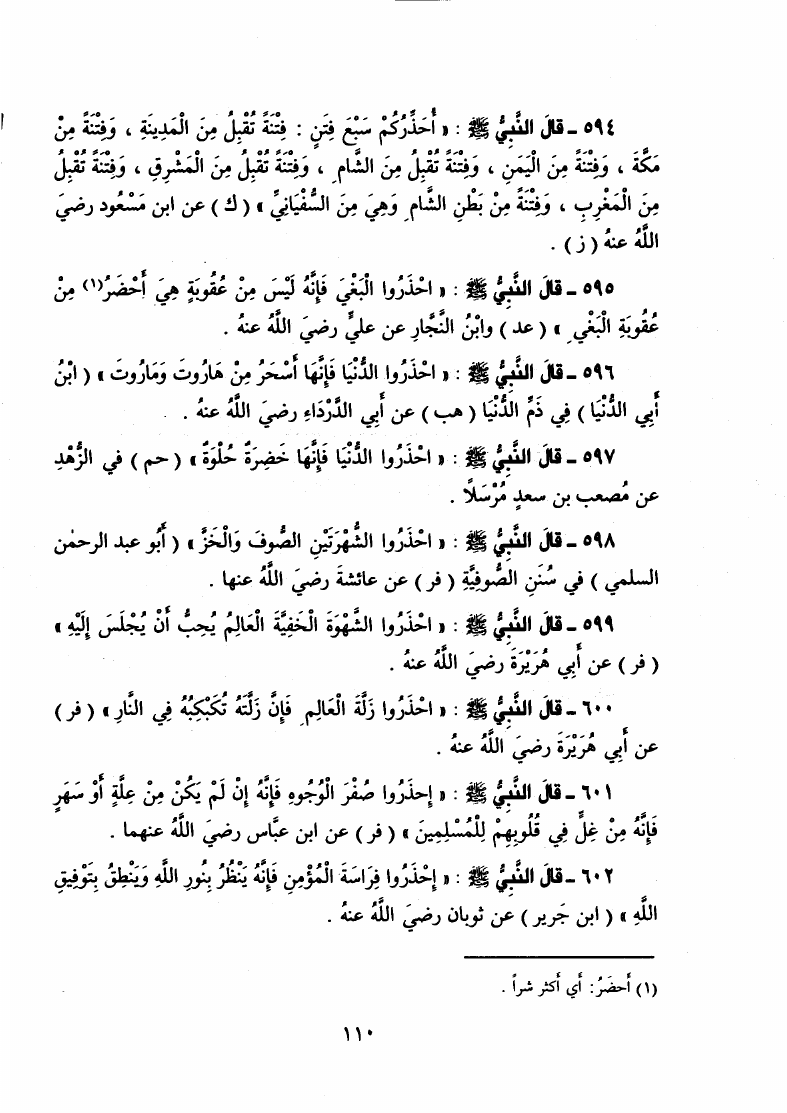 ٥٩٤ ـ قالَ النَّبِيُّ ﷺ : « أُحَذِّرُكُمْ سَبْعَ فِتَنٍ : فِتْنَةً تُقْبِلُ مِنَ الْمَدِينَةِ ، وَفِتْنَةً مِنْ
مَكَّةَ ، وَفِتْنَةً مِنَ الْيَمَنِ ، وَفِتْنَةً تُقْبِلُ مِنَ الشَّامِ ، وَفِتْنَةً تُقْبِلُ مِنَ الْمَشْرِقِ ، وَفِتْنَةً تُقْبِلُ
مِنَ الْمَغْرِبِ ، وَفِتْنَةً مِنْ بَطْنِ الشَّامِ وَهِيَ مِنَ السُّفْيَانِيِّ » ( ك ) عن ابن مَسْعُود رضيَ
اللَّهُ عنهُ ( ز ) .
٥٩٥ ـ قالَ النَّبِيُّ ﷺ : « احْذَرُوا الْبَغْيَ فَإِنَّهُ لَيْسَ مِنْ عُقُوبَةٍ هِيَ أَحْضَرُ(١) مِنْ
عُقُوبَةِ الْبَغْيِ » ( عد ) وابْنُ النَّجَّارِ عن عليٍّ رضيَ اللَّهُ عنهُ .
٥٩٦ ـ قالَ النَّبِيُّ ﷺ : « احْذَرُوا الدُّنْيَا فَإِنَّهَا أَسْحَرُ مِنْ هَارُوتَ وَمَارُوتَ » ( ابْنُ
أَبِي الدُّنْيَا ) فِي ذَمِّ الدُّنْيَا ( هب ) عن أَبِي الدَّرْدَاءِ رضيَ اللَّهُ عنهُ .
٥٩٧ ـ قالَ النَّبِيُّ ﷺ : « احْذَرُوا الدُّنْيَا فَإِنَّهَا خَضِرَةٌ حُلْوَةٌ » ( حم ) في الزُّهْدِ
عن مُصعب بن سعدٍ مُرْسَلًا .
٥٩٨ ـ قالَ النَّبِيُّ ﷺ : « احْذَرُوا الشُّهْرَتَيْنِ الصُّوفَ وَالْخَزَّ » ( أَبُو عبد الرحمٰن
السلمي ) في سُنَنِ الصُّوفِيَّةِ ( فر ) عن عائشةَ رضيَ اللَّهُ عنها .
٥٩٩ ـ قالَ النَّبِيُّ ﷺ : « احْذَرُوا الشَّهْوَةَ الْخَفِيَّةَ الْعَالِمُ يُحِبُّ أَنْ يُجْلَسَ إِلَيْهِ »
( فر ) عن أَبِي هُرَيْرَةَ رضيَ اللَّهُ عنهُ .
٦٠٠ ـ قالَ النَّبِيُّ ﷺ : « احْذَرُوا زَلَّةَ الْعَالِمِ فَإِنَّ زَلَّتَهُ تُكَبْكِبُهُ فِي النَّارِ » ( فر )
عن أَبِي هُرَيْرَةَ رضيَ اللَّهُ عنهُ .
٦٠١ ـ قالَ النَّبِيُّ ﷺ : « إِحذَرُوا صُفْرَ الْوُجُوهِ فَإِنَّهُ إِنْ لَمْ يَكُنْ مِنْ عِلَّةٍ أَوْ سَهَرٍ
فَإِنَّهُ مِنْ غِلٍّ فِي قُلُوبِهِمْ لِلْمُسْلِمِينَ » ( فر ) عن ابن عبَّاس رضيَ اللَّهُ عنهما .
٦٠٢ ـ قالَ النَّبِيُّ ﷺ : « إِحْذَرُوا فِرَاسَةَ الْمُؤْمِنِ فَإِنَّهُ يَنْظُرُ بِنُورِ اللَّهِ وَيَنْطِقُ بِتَوْفِيقِ
اللَّهِ » ( ابن جَرير ) عن ثوبان رضيَ اللَّهُ عنهُ .
(١) أَحضَرُ: أَي أَكثر شراً .
١١٠